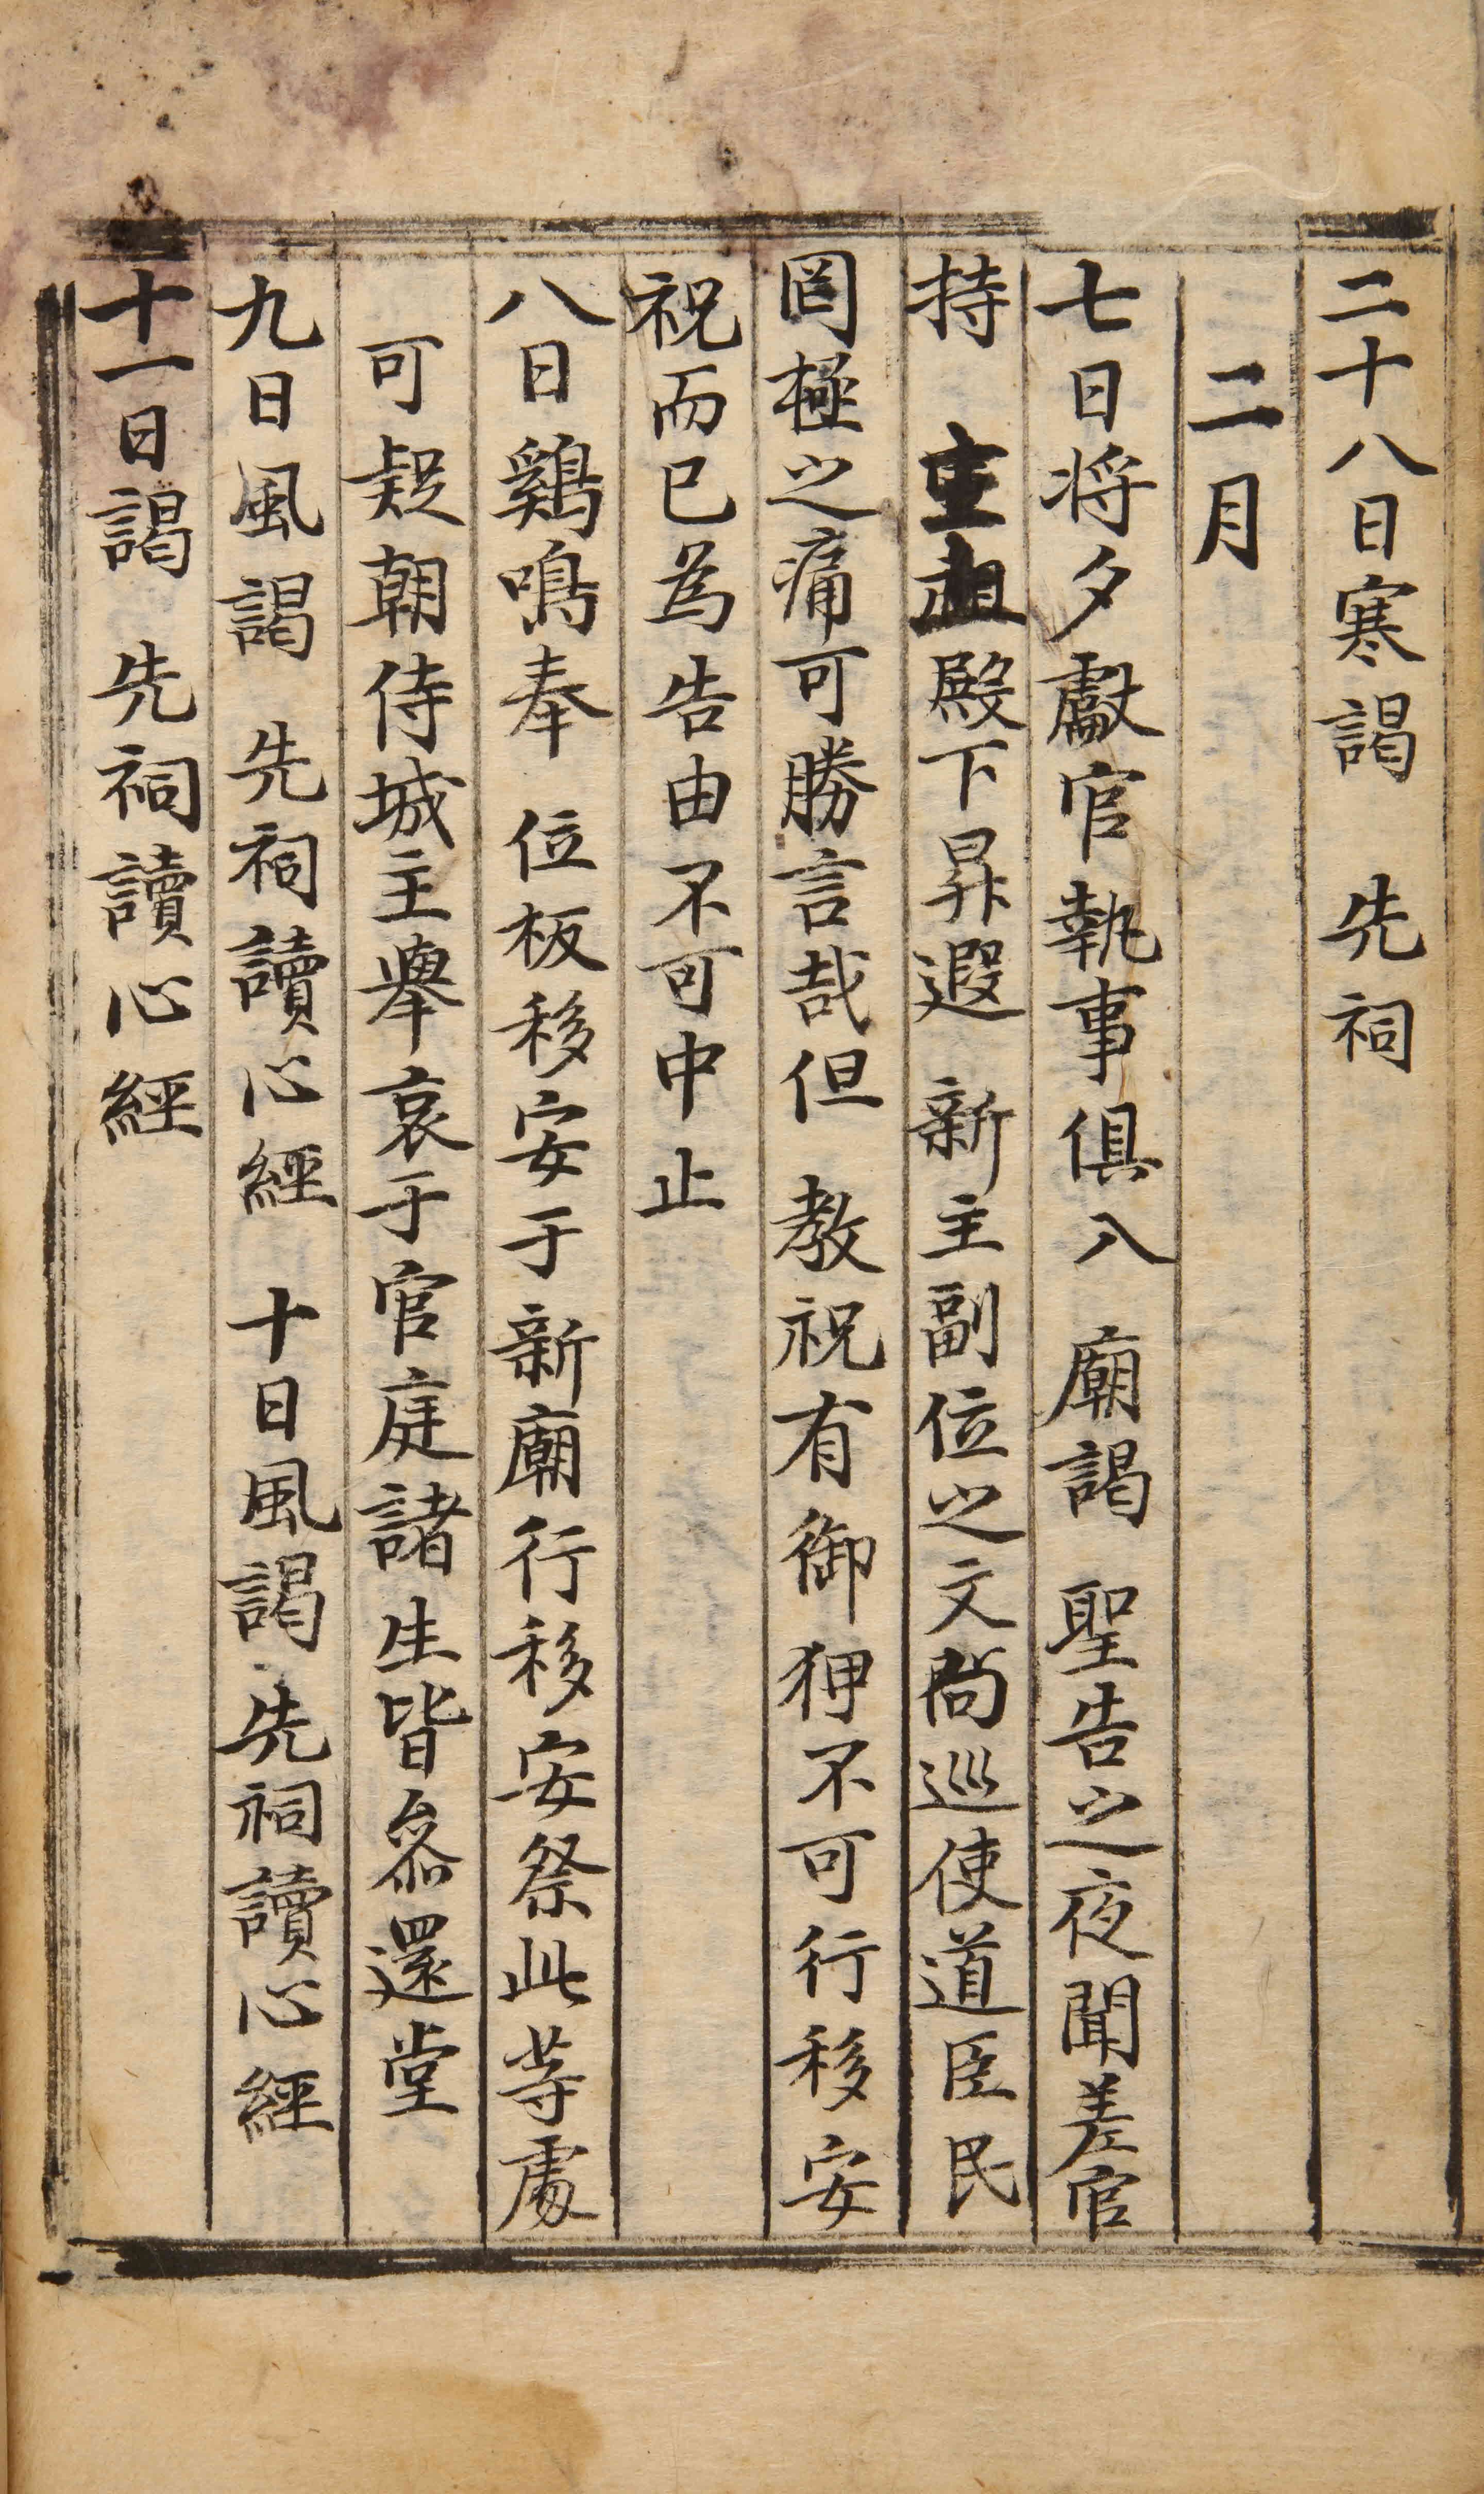 二十八日寒謁　先祠
二月
七日将夕獻官執事俱入　廟謁　聖告之夜聞差官
持　主上殿下昇遐　新主副位之文尚巡使道臣民
罔極之痛可勝言哉但　教祝有御押不可行移安
祝而已為告由不可中止
八日鷄鳴奉　位板移安于新廟行移安祭此等處
可疑朝侍城主舉哀于官庭諸生皆叅還堂
九日風謁　先祠讀心經　十日風謁　先祠讀心經
十一日謁　先祠讀心經